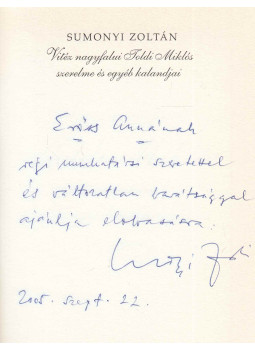 SUMONYI ZOLTÁN
Vitéz nagyfalui Toldi Miklós
szerelme és egyéb kalandjai
Erőss Annának
régi munkatársi szeretettel
és változatlan barátsággal
ajánlja elolvasásra:
Sumonyi Zoli
2005. szept. 22.